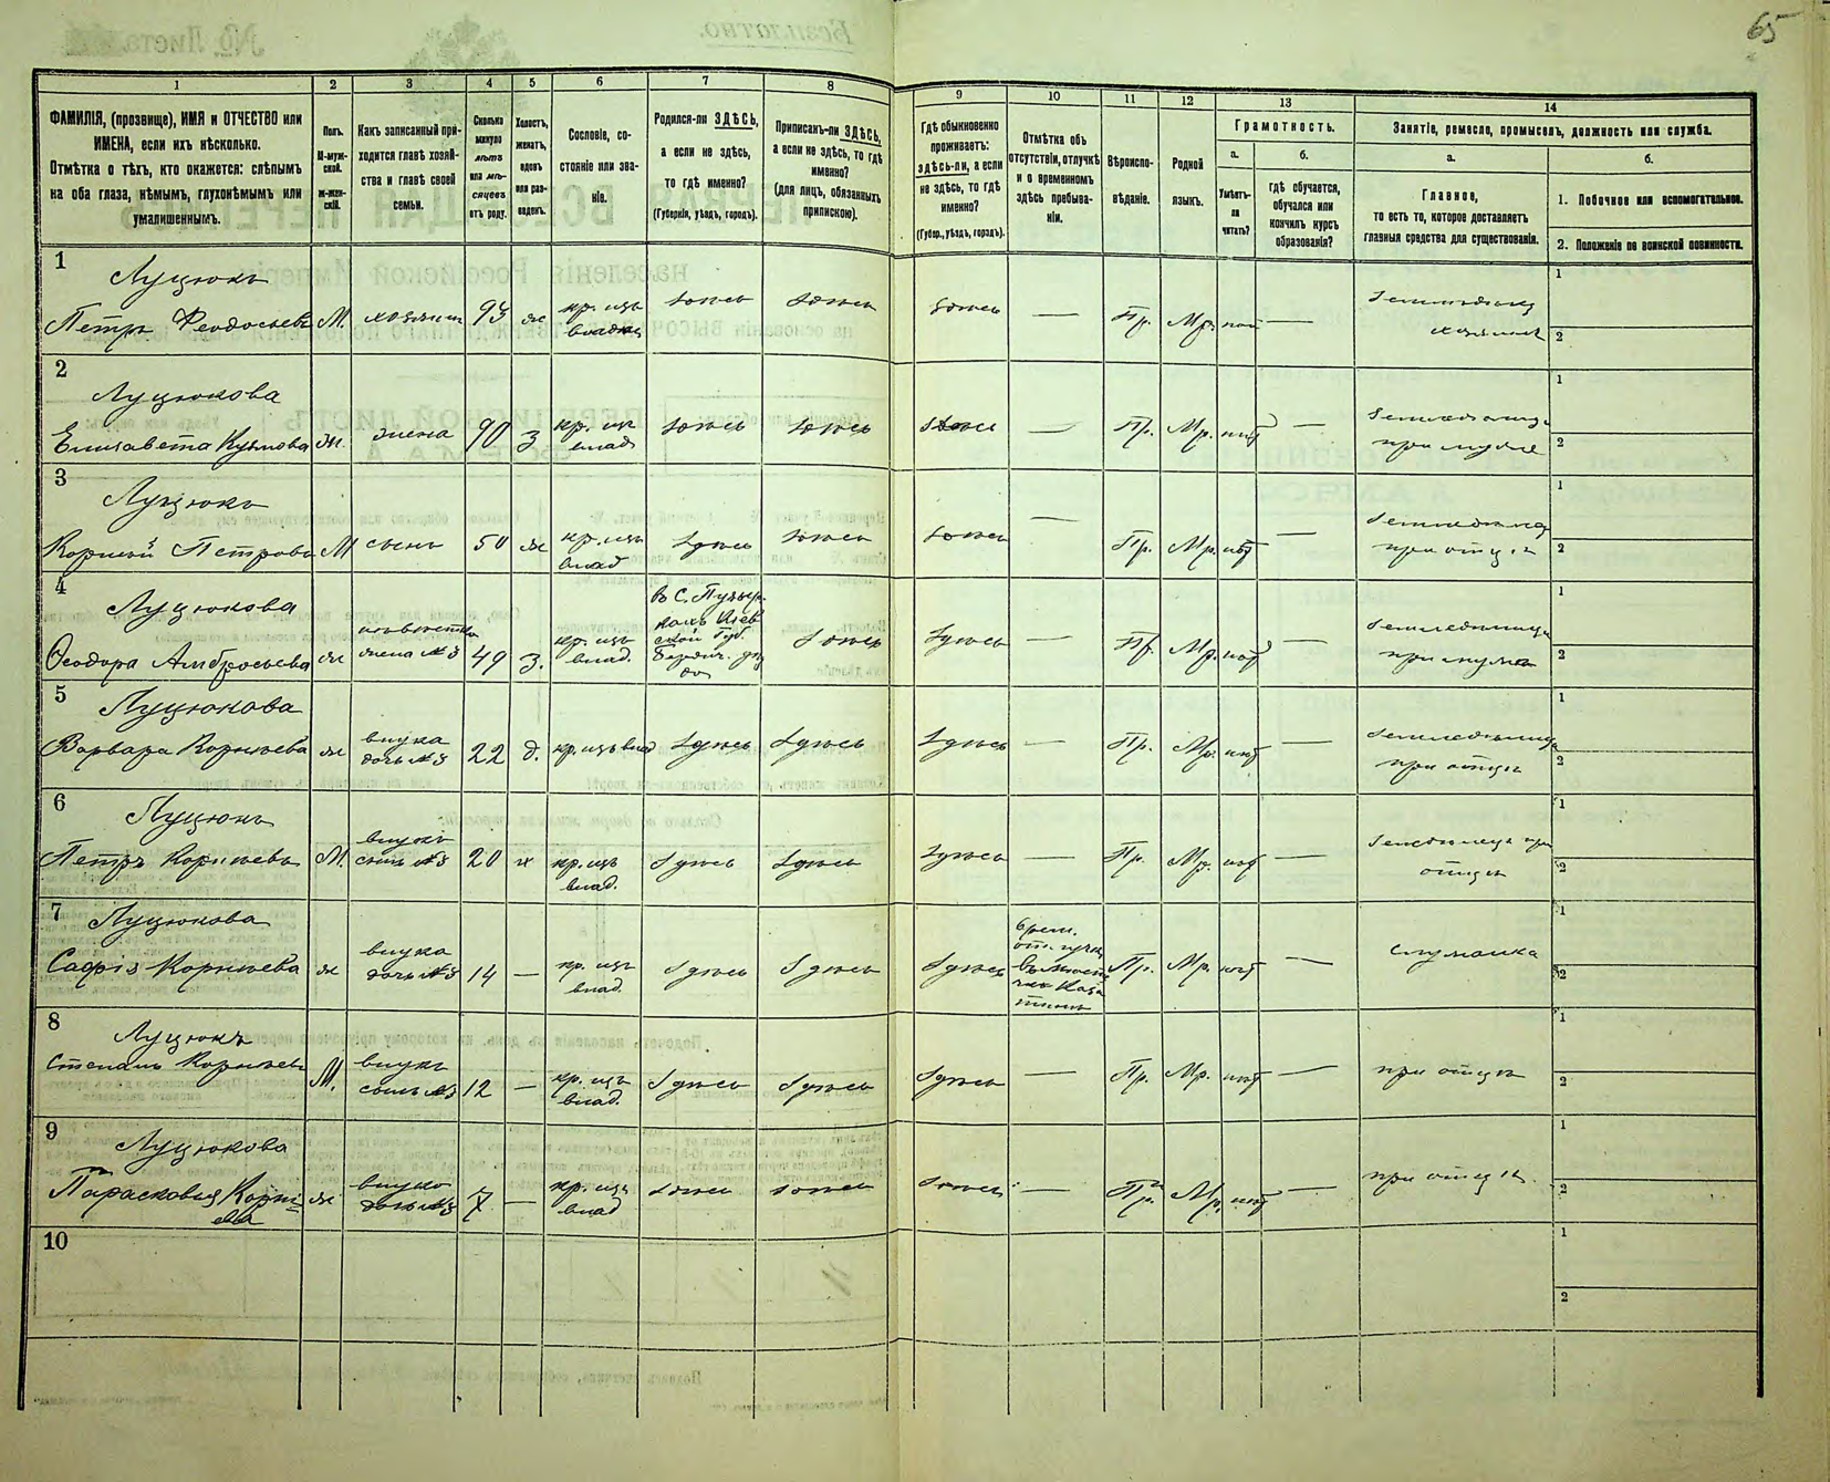 65
1 2 3 4 5 6 7 8 9 10 11 12 13 14
ФАМИЛІЯ, (прозвище), ИМЯ и ОТЧЕСТВО или
ИМЕНА, если ихъ нѣсколько.
Отмѣтка о тѣхъ, кто окажется: слѣпымъ
на оба глаза, нѣмымъ, глухонѣмымъ или
умалишеннымъ.
Полъ.
М-муж-
ской.
Ж-жен-
скій.
Какъ записанный при-
ходится главѣ хозяй-
ства и главѣ своей
семьи.
Сколько
минуло
лѣтъ
или мѣ-
сяцевъ
отъ роду.
Холостъ,
женатъ,
вдовъ
или раз-
веденъ.
Сословіе, со-
стояніе или зва-
ніе.
Родился-ли ЗДѢСЬ,
а если не здѣсь,
то гдѣ именно?
(Губернія, уѣздъ, городъ).
Приписанъ-ли ЗДѢСЬ,
а если не здѣсь, то гдѣ
именно?
(для лицъ, обязанныхъ
припискою).
Гдѣ обыкновенно
проживаетъ:
здѣсь-ли, а если
не здѣсь, то гдѣ
именно?
(Губер., уѣздъ, городъ).
Отмѣтка объ
отсутствіи, отлучкѣ
и о временномъ
здѣсь пребыва-
ніи.
Вѣроиспо-
вѣданіе.
Родной
языкъ.
Грамотность.
а.
Умѣетъ-
ли
читать?
б.
гдѣ обучается,
обучался или
кончилъ курсъ
образованія?
Занятіе, ремесло, промыселъ, должность или служба.
а.
Главное,
то есть то, которое доставляетъ
главныя средства для существованія.
б.
1. Побочное или вспомогательное.
2. Положеніе по воинской повинности.
1
Луцюкъ
Петръ Феодосіевъ М. хозяинъ 93 ж кр. изъ здѣсь здѣсь здѣсь — Пр. Мр. — 1
хозяинъ 2
2
Луцюкова
Елисавета Кузьмова ж. жена 90 з кр. изъ здѣсь здѣсь здѣсь — Пр. Мр. нѣт — 1
влад при мужѣ 2
3
Луцюкъ
Корнѣй Петровъ М сынъ 50 ж кр. изъ здѣсь здѣсь здѣсь — Пр. Мр. нѣт — 1
влад при отцѣ 2
4
Луцюкова
Ѳеодора Амбросьева ж невѣстка
жена №3 49 з. кр. изъ
влад.
въ С.
Губ.
здѣсь здѣсь — Пр. Мр. нѣт — 1
при мужѣ 2
5
Луцюкова
Варвара Корнѣева ж внука
дочь №3 22 д. кр. изъ влад здѣсь здѣсь здѣсь — Пр. Мр. нѣт — 1
при отцѣ 2
6
Луцюкъ
Петръ Корнѣевъ М. внукъ
сынъ №3 20 х кр. изъ
влад. здѣсь здѣсь здѣсь — Пр. Мр. нѣт — 1
отцѣ 2
7
Луцюкова
Софія Корнѣева ж внука
дочь №3 14 — кр. изъ
влад. здѣсь здѣсь здѣсь
врем.
Пр. Мр. нѣт — служанка 1
2
8
Луцюкъ
Степанъ Корнѣевъ М. внукъ
сынъ №3 12 — кр. изъ
влад. здѣсь здѣсь здѣсь — Пр. Мр. нѣт — при отцѣ 1
2
9
Луцюкова
Парасковія Корнѣ-
ева
ж внука
дочь №3 7 — кр. изъ
влад здѣсь здѣсь здѣсь — Пр. Мр. нѣт — при отцѣ. 1
2
10
1
2